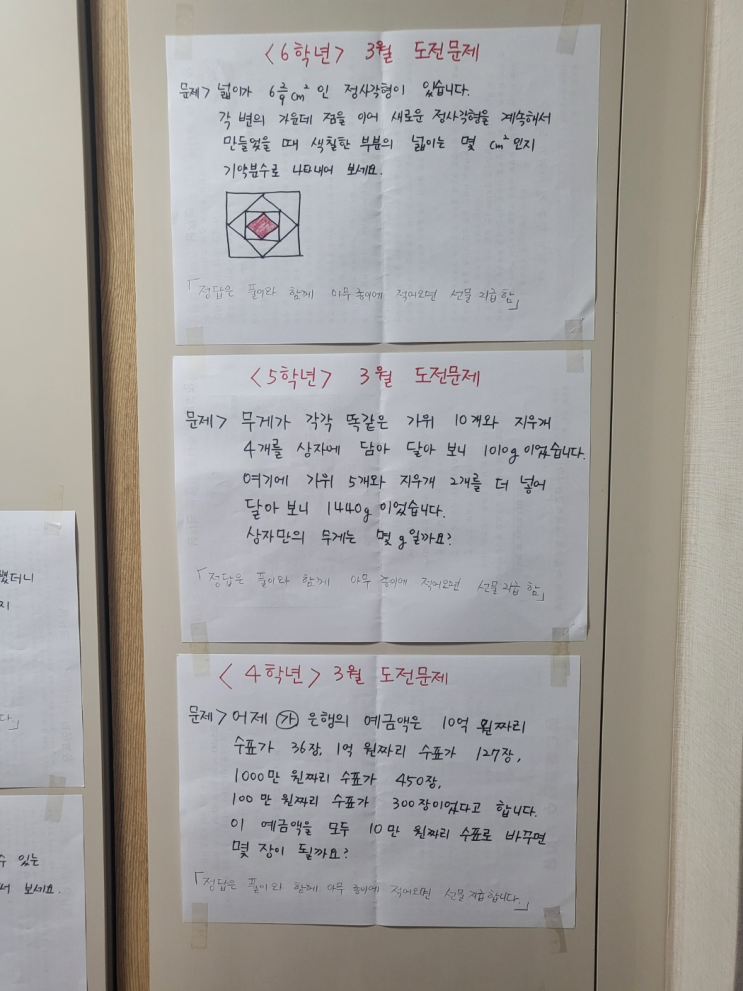 <6학년> 3월 도전문제
문제> 넓이가 6 2/9 cm² 인 정사각형이 있습니다.
각 변의 가운데 점을 이어 새로운 정사각형을 계속해서
만들었을 때 색칠한 부분의 넓이는 몇 cm²인지
기약분수로 나타내어 보세요.
「정답은 풀이와 함께 아무 종이에 적어오면 선물 지급 함」
<5학년> 3월 도전문제
문제> 무게가 각각 똑같은 가위 10개와 지우개
4개를 상자에 담아 달아 보니 1010g 이었습니다.
여기에 가위 5개와 지우개 2개를 더 넣어
달아 보니 1440g 이었습니다.
상자만의 무게는 몇 g일까요?
「정답은 풀이와 함께 아무 종이에 적어오면 선물 지급 함」
<4학년> 3월 도전문제
문제> 어제 ㉮ 은행의 예금액은 10억 원짜리
수표가 36장, 1억 원짜리 수표가 127장,
1000만 원짜리 수표가 450장,
100만 원짜리 수표가 300장이었다고 합니다.
이 예금액을 모두 10만 원짜리 수표로 바꾸면
몇 장이 될까요?
「정답은 풀이와 함께 아무 종이에 적어오면 선물 지급합니다.」
했더니
지
다」
수 있는
서 보세요.